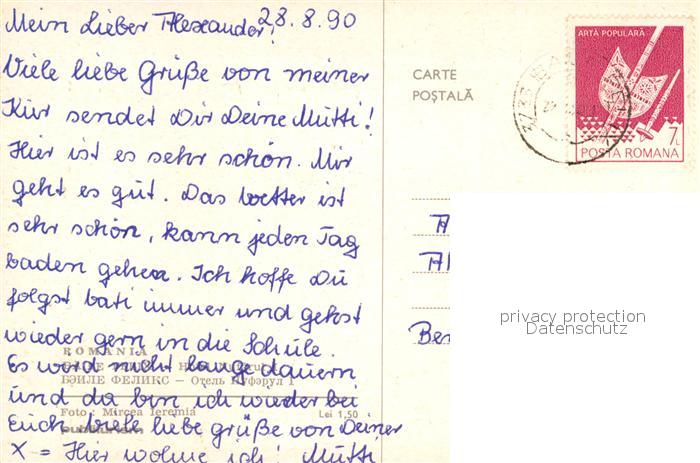 28.8.90
Mein Lieber Alexander!
Viele liebe Grüße von meiner
Kur sendet Dir Deine Mutti!
Hier ist es sehr schön. Mir
geht es gut. Das Wetter ist
sehr schön, kann jeden Tag
baden gehen. Ich hoffe Du
folgst Vati immer und gehst
wieder gern in die Schule.
Es wird nicht lange dauern
und da bin ich wieder bei
Euch. Viele liebe grüße von Deiner
X = Hier wohne ich! Mutti
ROMÂNIA
БЭИЛЕ ФЕЛИКС — Отель
Foto: Mircea Ieremia
Lei 1,50
CARTE
POȘTALĂ
ARTĂ POPULARĂ
7L
POSTA ROMANA
Ber
privacy protection
Datenschutz